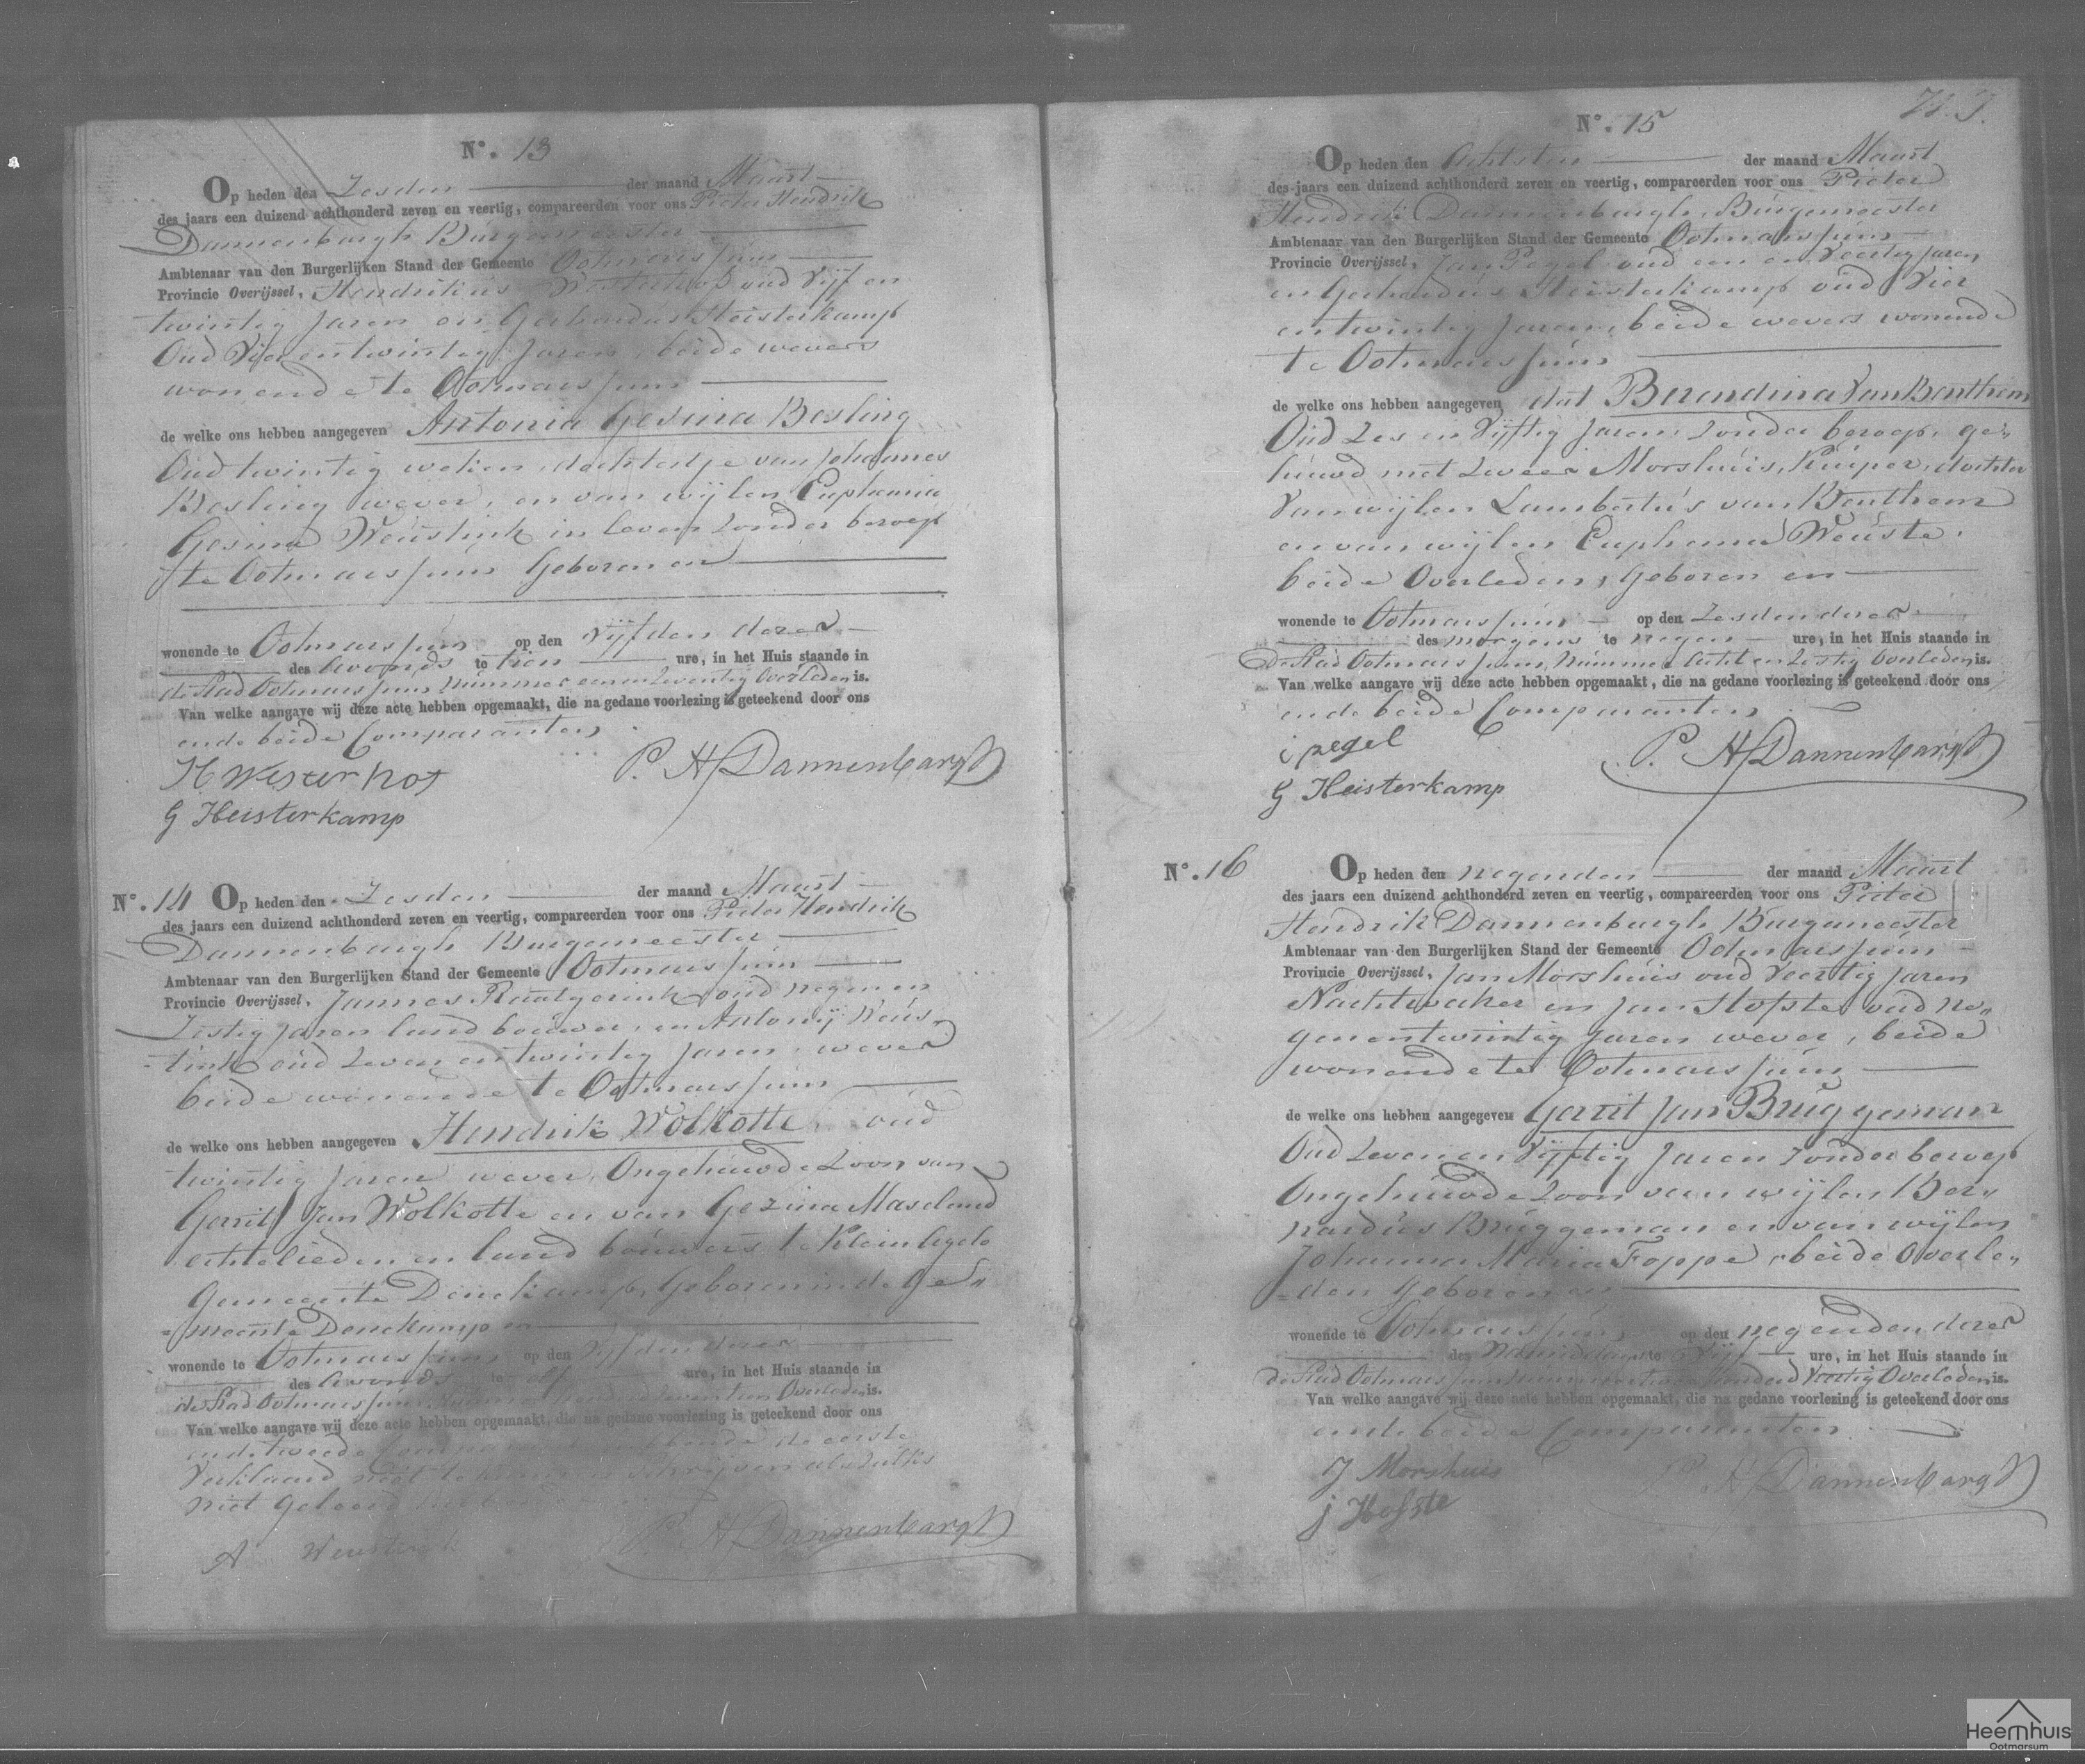 N°. 13
Op heden den Zesden der maand Maart
des jaars een duizend achthonderd zeven en veertig, compareerden voor ons Pieter Hendrik
Dannenbargh Burgemeester
Ambtenaar van den Burgerlijken Stand der Gemeente Ootmarssum
Provincie Overijssel, Hendrikus Westerhof oud Vijf en
twintig Jaren en Gerhardus Heisterkamp
Oud Vier entwintig Jaren, beide wevers
wonende te Ootmarssum
de welke ons hebben aangegeven Antonia Gesina Besling
Oud twintig weken, dochtertje van Johannes
Besling wever, en van wijlen Euphemia
Gesina Weustink in leven zonder beroep
te Ootmarssum Geboren en
wonende te Ootmarssum op den Vijfden dezer
des Avonds te tien ure, in het Huis staande in
de Stad Ootmarssum Nummer een en Zeventig Overleden is.
Van welke aangave wij deze acte hebben opgemaakt, die na gedane voorlezing is geteekend door ons
en de beide Comparanten
H Westerhof P. H Dannenbargh
G Heisterkamp
N°. 14 Op heden den Zesden der maand Maart
des jaars een duizend achthonderd zeven en veertig, compareerden voor ons Pieter Hendrik
Dannenbargh Burgemeester
Ambtenaar van den Burgerlijken Stand der Gemeente Ootmarssum
Provincie Overijssel, Jannes Raatgerink oud negen en
Zestig jaren land bouwer, en Antonij Weus-
-tink oud Zeven entwintig Jaren, wever
beide wonende te Ootmarssum
de welke ons hebben aangegeven Hendrik Wolkotte oud
twintig Jaren wever, Ongehuwde Zoon van
Gerrit Jan Wolkotte en van Gezina Maseland
echtelieden en land bouwers te Klein Agelo
Gemeente Denekamp, Geboren in de Ge„
=meente Denekamp en
wonende te Ootmarssum op den Vijfden dezer
des Avonds te elf ure, in het Huis staande in
de Stad Ootmarssum Overleden is.
Van welke aangave wij deze acte hebben opgemaakt, die na gedane voorlezing is geteekend door ons
en de tweede Comparant hebbende de eerste
Verklaard niet te kunnen schrijven als zulks
niet geleerd
A Weustink P. H Dannenbargh
N°. 15
Op heden den Achtsten der maand Maart
des jaars een duizend achthonderd zeven en veertig, compareerden voor ons Pieter
Hendrik Dannenbargh, Burgemeester
Ambtenaar van den Burgerlijken Stand der Gemeente Ootmarssum
Provincie Overijssel, Jan Pegel oud een en Veertig Jaren
en Gerhardus Heisterkamp oud Vier
entwintig Jaren, beide wevers wonende
te Ootmarssum
de welke ons hebben aangegeven dat Berendina Van Benthem
Oud Zes en Vijftig Jaren Zonder beroep, ge„
huwd met Zweer Morshuis, Kuiper, dochter
Van wijlen Lambertus van Benthem
en van wijlen Euphema Weuste,
beide Overleden, Geboren en
wonende te Ootmarssum op den Zesden dezer
des morgens te negen ure, in het Huis staande in
de Stad Ootmarssum, Nummer Acht en Zestig Overleden is.
Van welke aangave wij deze acte hebben opgemaakt, die na gedane voorlezing is geteekend door ons
en de beide Comparanten
j pegel P. H Dannenbargh
G Heisterkamp
N°. 16 Op heden den negenden der maand Maart
des jaars een duizend achthonderd zeven en veertig, compareerden voor ons Pieter
Hendrik Dannenbargh Burgemeester
Ambtenaar van den Burgerlijken Stand der Gemeente Ootmarssum
Provincie Overijssel, Jan Morshuis oud Veertig Jaren
Nachtwaker en Jan Hofste oud Ne„
genentwintig Jaren wever, beide
wonende te Ootmarssum
de welke ons hebben aangegeven Gerrit Jan Bruggeman
Oud Zeven en Vijftig Jaren Zonder beroep
Ongehuwde Zoon van wijlen Ber„
nardus Bruggeman en van wijlen
Johanna Maria Foppe, beide Overle„
=den Geboren en
wonende te Ootmarssum op den negenden dezer
des Namiddags te Vijf ure, in het Huis staande in
de Stad Ootmarssum Veertig Overleden is.
Van welke aangave wij deze acte hebben opgemaakt, die na gedane voorlezing is geteekend door ons
en de beide Comparanten
J Morshuis P. H Dannenbargh
j Hofste
Heemhuis
Ootmarsum